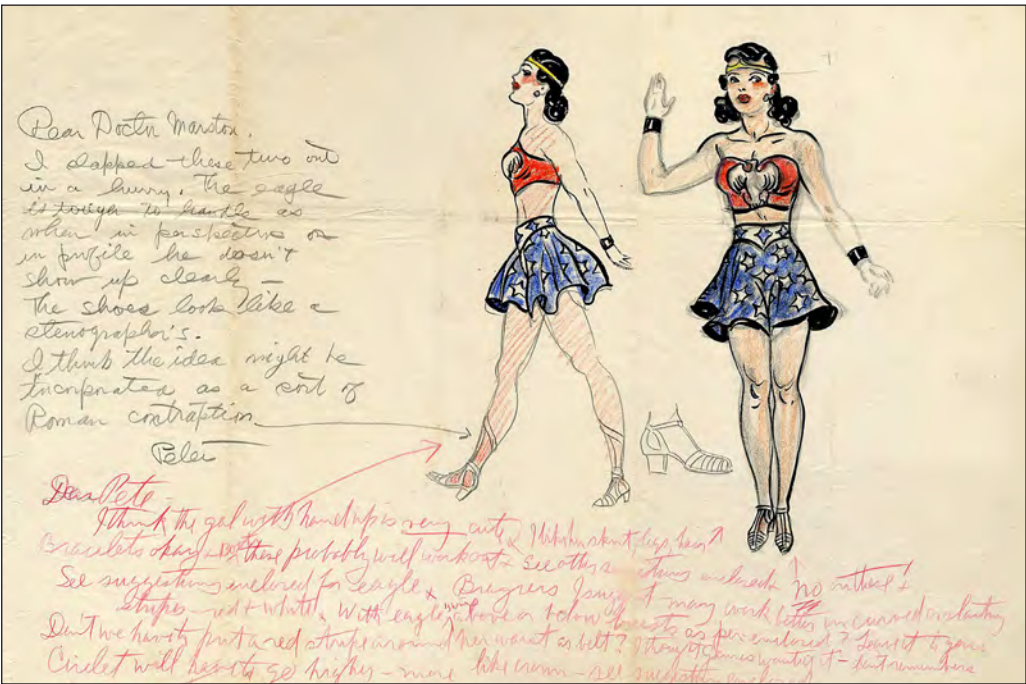 Dear Doctor Marston.
I slapped these two out
in a hurry. The eagle
is tougher to handle as
when in perspective or
in profile he doesn't
show up clearly —
The shoes look like a
stenographer's.
I think the idea might be
incorporated as a sort of
Roman contraption.
Peter
Dear Pete -
I think the gal with hand up is very cute. I like her skirt, legs, hair.
Bracelets okay + these probably will work out. See other suggestions enclosed. No on these!
See suggestions enclosed for eagle + I suggest may work better in curved or slanting
stripes - red + white. With eagle's wings above or below breasts as per enclosed? Leave it to you.
Don't we have to put a red stripe around her waist as belt? I thought Gaines wanted it - don't remember.
Circlet will have to go higher - more like crown - see suggestion enclosed